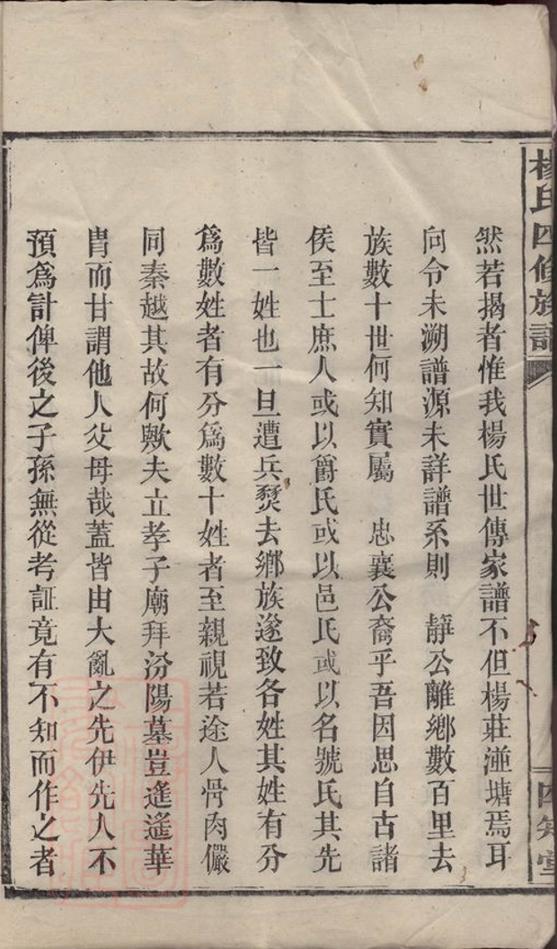 楊氏四修族譜
四知堂
然若揭者惟我楊氏世傳家譜不但楊莊湴塘焉耳
向令未溯譜源未詳譜系則　靜公離鄉數百里去
族數十世何知實屬　忠襄公裔乎吾因思自古諸
侯至士庶人或以爵氏或以邑氏或以名號氏其先
皆一姓也一旦遭兵燹去鄉族遂致各姓其姓有分
爲數姓者有分爲數十姓者至親視若途人骨肉儼
同秦越其故何歟夫立孝子廟拜汾陽墓豈遙遙華
胄而甘謂他人父母哉蓋皆由大亂之先伊先人不
預爲計俾後之子孫無從考証竟有不知而作之者